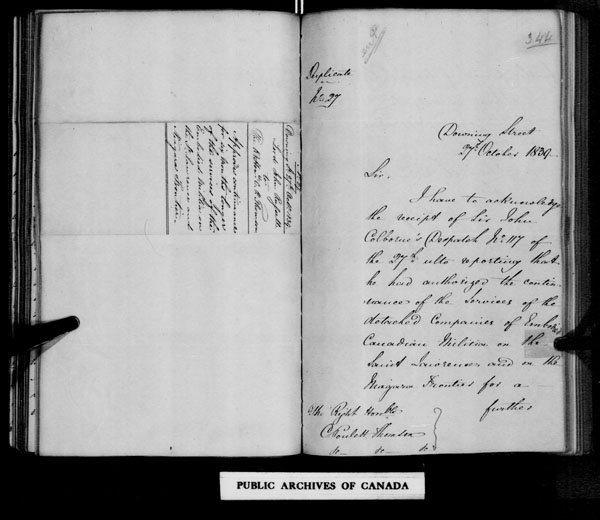 Downing St 27 Octr 1839
Lord John Russell
to
The Rt Hon C. P. Thomson
Approves continuance
for six months longer
of the services of the
Embodied Militia on
the St Lawrence and
Niagara Frontier.
344
Duplicate
No 27
Downing Street
27th October 1839
Sir,
I have to acknowledge
the receipt of Sir John
Colborne's Despatch No 117 of
the 27th ulto reporting that
he had authorized the contin-
uance of the Services of the
detached Companies of Embodied
Canadian Militia on the
Saint Lawrence and on the
Niagara Frontier for a
further
The Right Honble
C. Poulett Thomson
&c &c &c
PUBLIC ARCHIVES OF CANADA